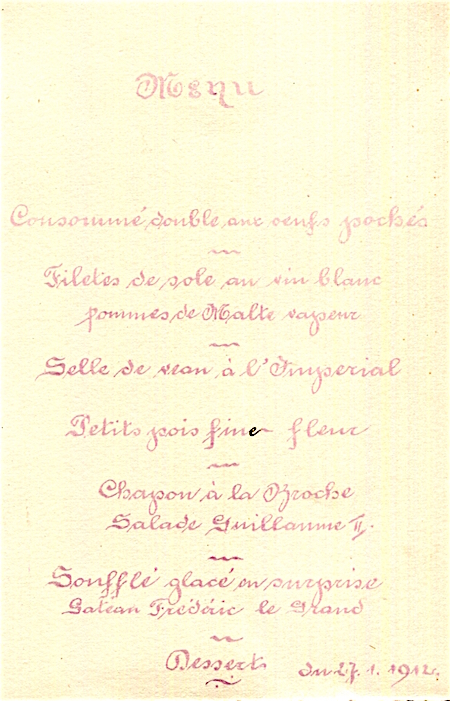 Menu
Consommé double aux oeufs pochés
Filetes de sole au vin blanc
pommes de Malte vapeur
Selle de veau à l'Imperial
Petits pois fine fleur
Chapon à la Broche
Salade Guillaume II.
Soufflé glacé en surprise
Gateau Frédéric le Grand
Desserts
du 27.1.1912.